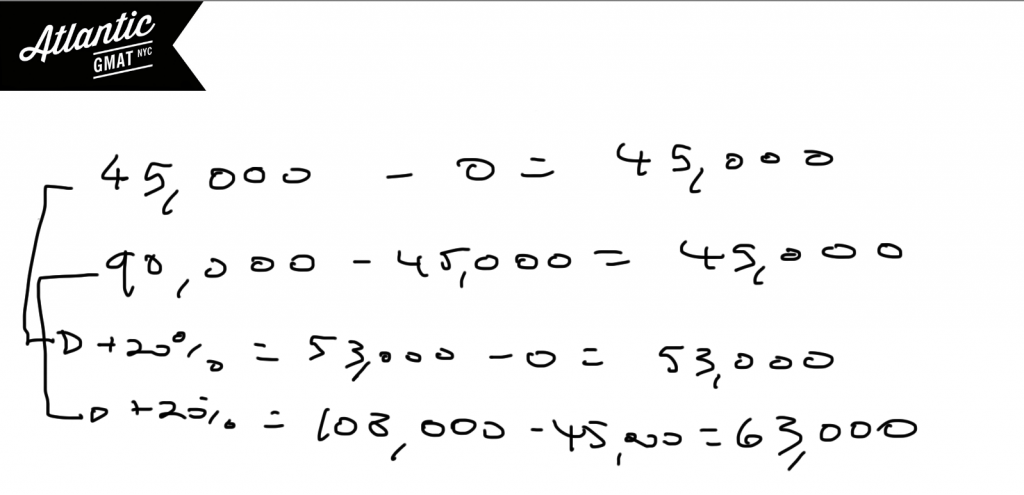 Atlantic
GMAT NYC
45,000 - 0 = 45,000
90,000 - 45,000 = 45,000
D + 20% = 53,000 - 0 = 53,000
D + 20% = 108,000 - 45,000 = 63,000